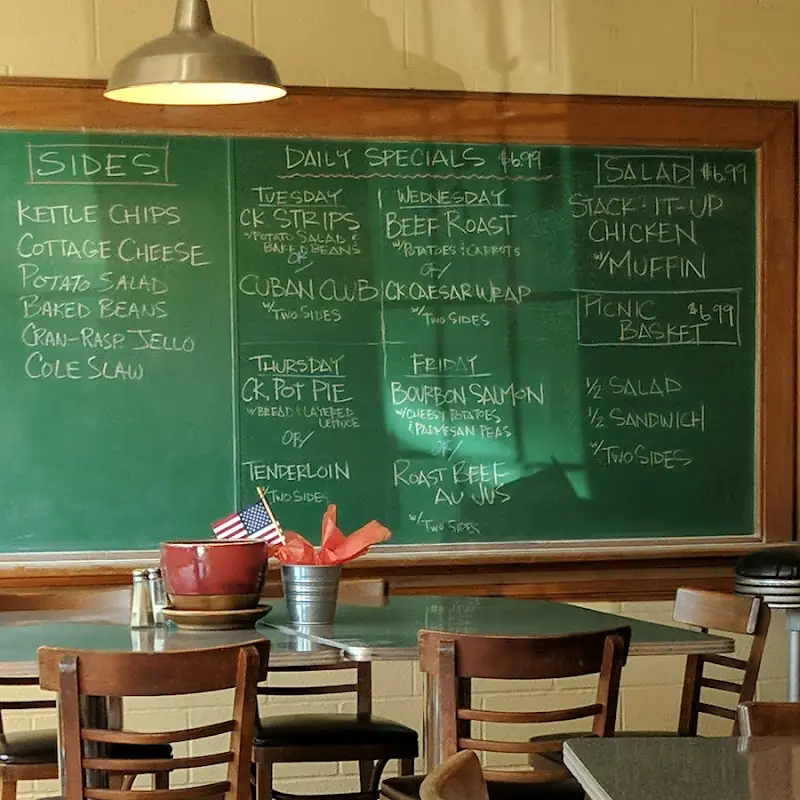 SIDES
KETTLE CHIPS
COTTAGE CHEESE
POTATO SALAD
BAKED BEANS
CRAN-RASP. JELLO
COLE SLAW
DAILY SPECIALS $6.99
TUESDAY
CK STRIPS
W/POTATO SALAD &
BAKED BEANS
OR/
CUBAN CLUB
W/TWO SIDES
WEDNESDAY
BEEF ROAST
W/POTATOES & CARROTS
OR/
CK CAESAR WRAP
W/TWO SIDES
THURSDAY
CK. POT PIE
W/BREAD & LAYERED
LETTUCE
OR/
TENDERLOIN
W/TWO SIDES
FRIDAY
BOURBON SALMON
W/CHEESY POTATOES
& PARMESAN PEAS
OR/
ROAST BEEF
AU JUS
W/TWO SIDES
SALAD $6.99
STACK-IT-UP
CHICKEN
W/MUFFIN
PICNIC $6.99
BASKET
1/2 SALAD
1/2 SANDWICH
W/TWO SIDES